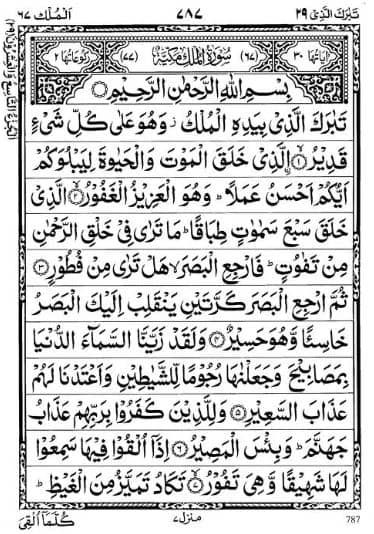 تَبٰرَكَ الَّذِیْ ٢٩
٧٨٧
اَلْمُلْك ٦٧
اٰيَاتُهَا ٣٠
(٦٧) سُوْرَةُ الْمُلْكِ مَكِّيَّةٌ (٧٧)
رُكُوْعَاتُهَا ٢
بِسْمِ اللّٰهِ الرَّحْمٰنِ الرَّحِيْمِ
تَبٰرَكَ الَّذِیْ بِيَدِهِ الْمُلْكُ ز وَهُوَ عَلٰى كُلِّ شَیْءٍ
قَدِيْرُ ۙ﴿١﴾ الَّذِیْ خَلَقَ الْمَوْتَ وَالْحَيٰوةَ لِيَبْلُوَكُمْ
اَيُّكُمْ اَحْسَنُ عَمَلًا ؕ وَهُوَ الْعَزِيْزُ الْغَفُوْرُ ۙ﴿٢﴾ الَّذِیْ
خَلَقَ سَبْعَ سَمٰوٰتٍ طِبَاقًا ؕ مَا تَرٰى فِیْ خَلْقِ الرَّحْمٰنِ
مِنْ تَفٰوُتٍ ؕ فَارْجِعِ الْبَصَرَ ۙ هَلْ تَرٰى مِنْ فُطُوْرٍ ﴿٣﴾
ثُمَّ ارْجِعِ الْبَصَرَ كَرَّتَيْنِ يَنْقَلِبْ اِلَيْكَ الْبَصَرُ
خَاسِئًا وَّهُوَ حَسِيْرٌ ﴿٤﴾ وَلَقَدْ زَيَّنَّا السَّمَآءَ الدُّنْيَا
بِمَصَابِيْحَ وَجَعَلْنٰهَا رُجُوْمًا لِّلشَّيٰطِيْنِ وَاَعْتَدْنَا لَهُمْ
عَذَابَ السَّعِيْرِ ﴿٥﴾ وَلِلَّذِيْنَ كَفَرُوْا بِرَبِّهِمْ عَذَابُ
جَهَنَّمَ ؕ وَبِئْسَ الْمَصِيْرُ ﴿٦﴾ اِذَآ اُلْقُوْا فِيْهَا سَمِعُوْا
لَهَا شَهِيْقًا وَّهِیَ تَفُوْرُ ۙ﴿٧﴾ تَكَادُ تَمَيَّزُ مِنَ الْغَيْظِ ؕ
كُلَّمَآ اُلْقِیَ
منزل ٧
787